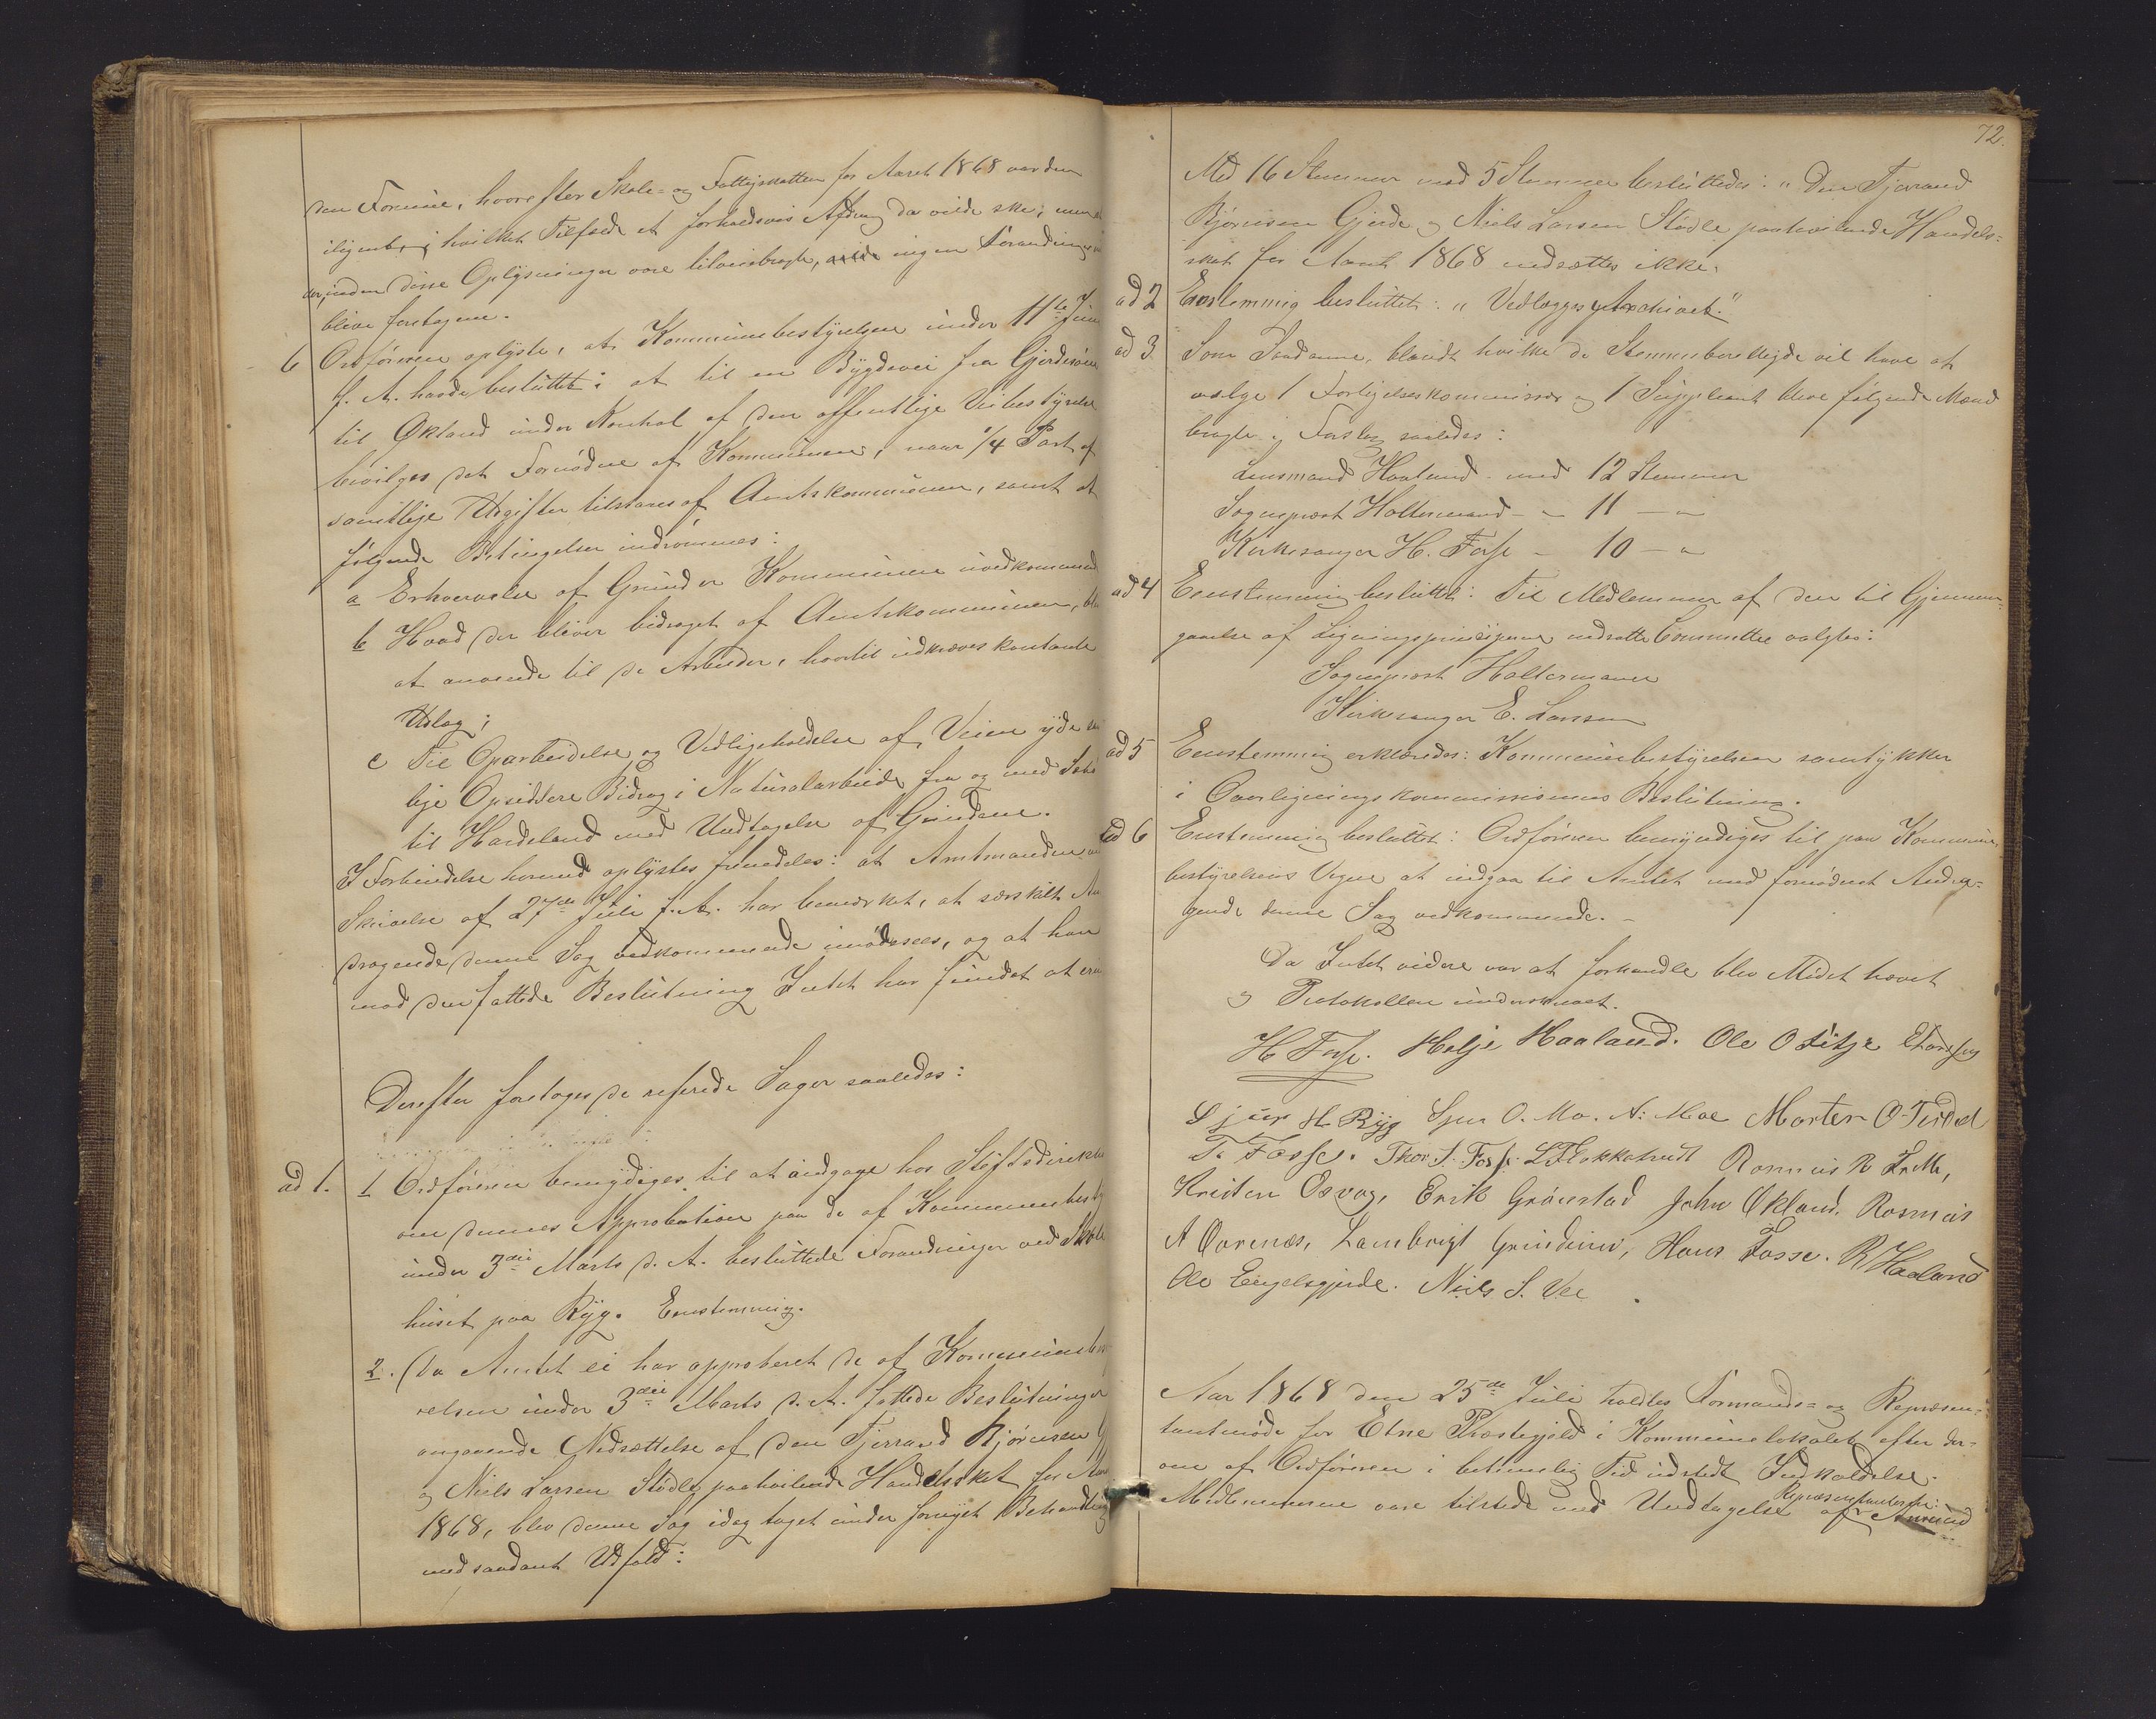 den Formue, hvorefter Skole- og Fattigskatten for Aaret 1868 var dem
ilignet, i hvilket Tilfælde et forholdsvis Afdrag da vilde ske; men
inden disse Oplysninger vare tilveiebragte, ingen Forandring
blive foretagen.
6 Ordføreren oplyste, at Kommunebestyrelsen under 11te Juni
f. A. havde besluttet: at til en Bygdevei fra Gjerdesøen
til Økland under Kontrol af den offentlige Veibestyrelse
bevilges det Fornødne af Kommunen, naar 1/4 Part af
samtlige Udgifter tilstaaes af Amtskommunen, samt at
følgende Betingelser indrømmes:
a Erhvervelse af Grund er Kommunen uvedkommende
b Hvad der bliver bidraget af Amtskommunen,
at anvende til de Arbeider, hvortil udkræves kontante
Udlæg;
c Til Oparbeidelse og Vedligeholdelse af Veien yde
lige Opsiddere Bidrag i Naturalarbeide fra og med
til Hardeland med Undtagelse af Grindene.
I Forbindelse hermed oplystes fremdeles: at Amtmanden
Skrivelse af 27de Juli f. A. har bemærket, at særskilt An-
dragende denne Sag vedkommende imødesees, og at han
mod den fattede Beslutning Intet har fundet at
Derefter foretoges de refererede Sager saaledes:
ad 1. 1 Ordføreren bemyndiges til at andgage hos Stiftsdirekti
om dennes Approbation paa de af Kommunebesty
under 3die Marts d. A. besluttede Forandringer ved Skole
huset paa Ryg. Enstemmig.
2. Da Amtet ei har approberet de af Kommunebesty
relsen under 3die Marts d. A. fattede Beslutninger
angaaende Nedsættelse af den Tjerrand Bjørnsen
og Niels Larsen Stødle paahvilende Handelsskat for Aaret
1868, blev denne Sag idag taget under fornyet Behandling
med saadant Udfald:
72.
Med 16 Stemmer mod 5 Stemmer besluttedes: "Den Tjerrand
Bjørnsen Gjerde og Niels Larsen Stødle paahvilende Handels-
skat for Aaret 1868 nedsættes ikke.
ad 2 Enstemmig besluttet: "Vedlægges Archivet."
ad 3. Som Saadanne, blandt hvilke de Stemmeberettigede vil have at
vælge 1 Forligelseskommissær og 1 Suppleant bleve følgende Mænd
bragte i Forslag saaledes:
Lensmand Haaland med 12 Stemmer
Sogneprest Holtermand - " 11 - "
Kirkesanger H. Fosse - 10 - "
ad 4 Enstemmig besluttet: Til Medlemmer af den til Gjennem-
gaaelse af Ligningsprinciperne nedsatte Committee valgtes:
Sogneprest Holtermann
Kirkesanger E. Larssen
ad 5 Enstemmig erklæredes: Kommunebestyrelsen samtykker
i Overligningskommissionens Beslutning.
ad 6 Enstemmig besluttet: Ordføreren bemyndiges til paa Kommune-
bestyrelsens Vegne at indgaa til Amtet med fornødent Andra-
gende denne Sag vedkommende. -
Da Intet videre var at forhandle blev Mødet hævet
og Protokollen underskrevet.
H Fosse. Helje Haaland. Ole O Litze
Sjur H. Ryg O. Mo. N: Moe Morten O.
T. Fosse. Thor S. Fosse. L Flokketvedt Rasmus R
Kristen Osvag, Erik Grønstad John Økland. Rasmus
A Oarenæs, Lambrigt Grindeim, Hans Fosse. R Haaland
Ole Engelsgjerde. Niels S. Vee
Aar 1868 den 25de Juli holdtes Formands- og Repræsen-
tantmøde for Etne Præstegjeld i Kommunelokalet efter der-
om af Ordføreren i betimelig Tid udstedt Indkaldelse.
Medlemmerne vare tilstede med Undtagelse af Repræsentanterne: